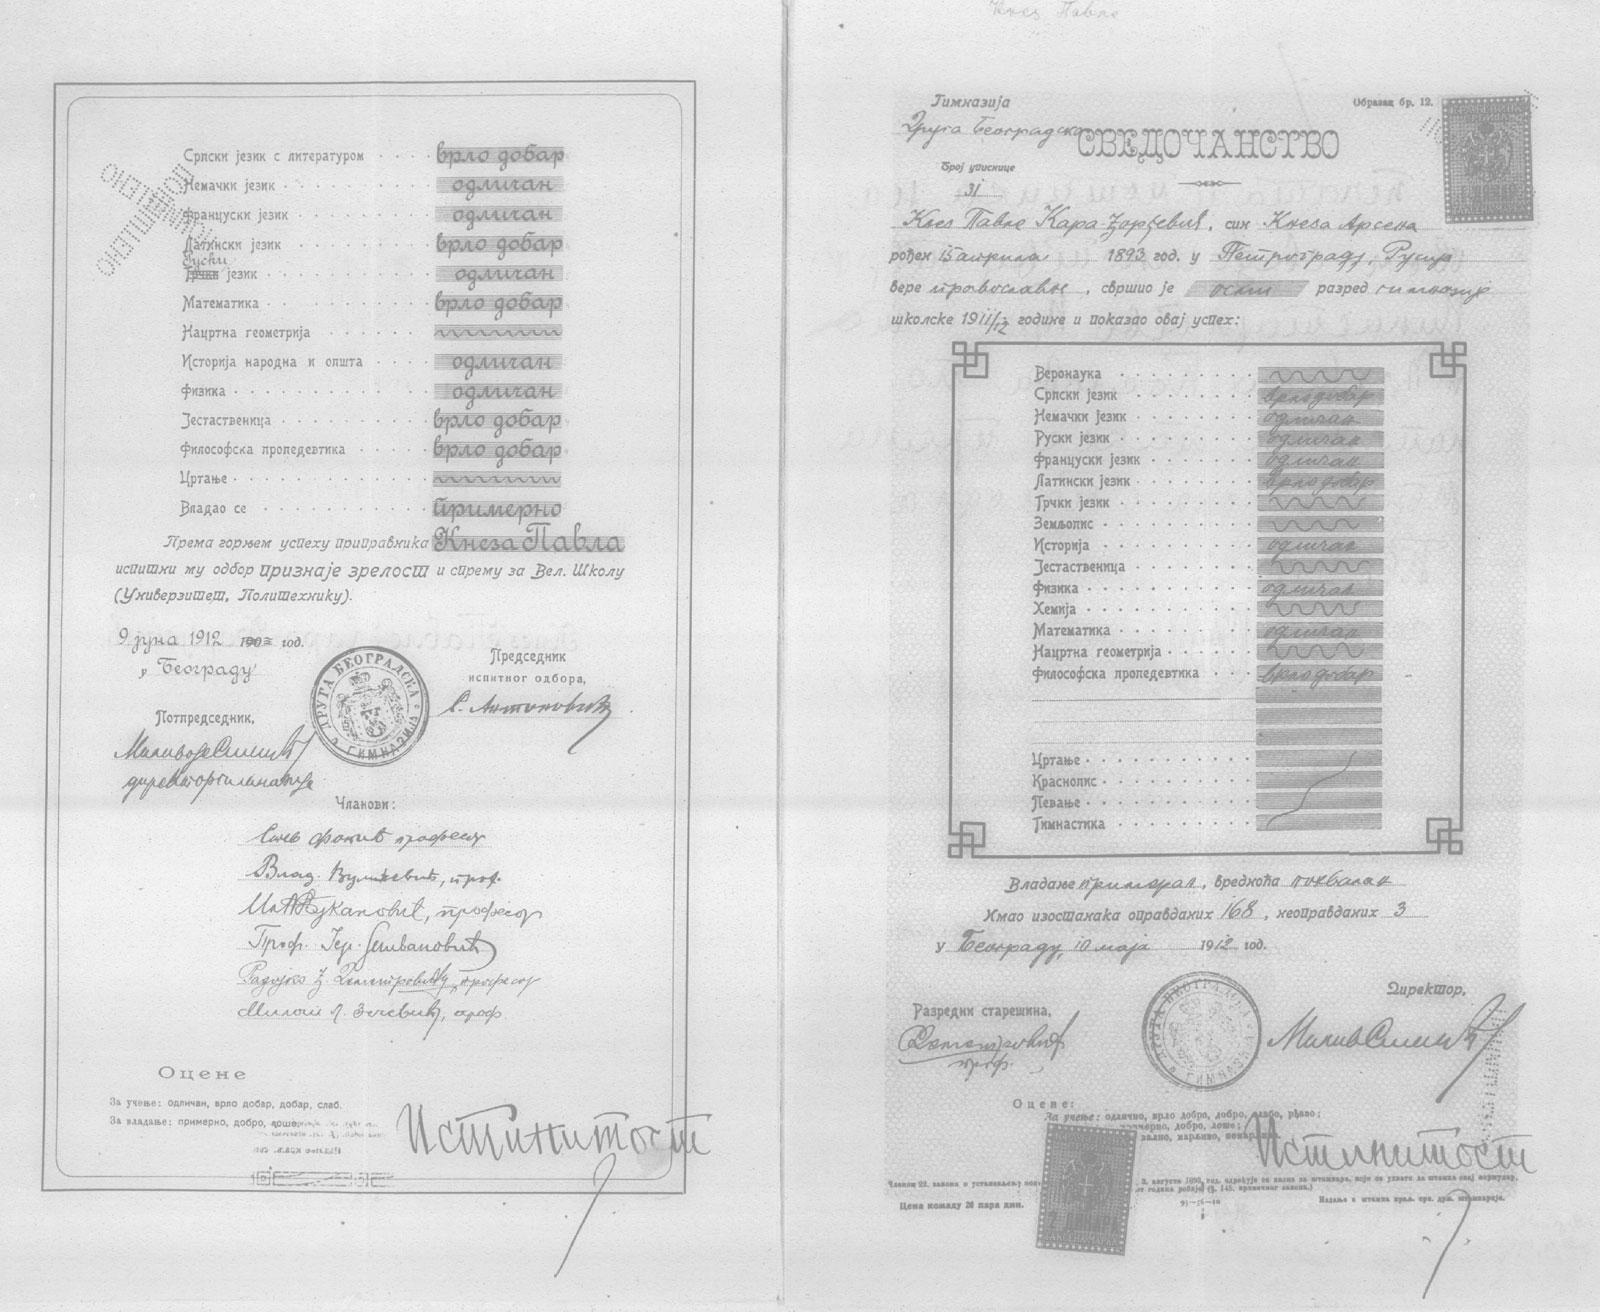 Српски језик с литературом врло добар
Немачки језик одличан
Француски језик одличан
Латински језик врло добар
Руски
Грчки језик одличан
Математика врло добар
Нацртна геометрија
Историја народна и општа одличан
Физика одличан
Јестаственица врло добар
Философска пропедевтика врло добар
Цртање
Владао се примерно
Према горњем успеху приправника Кнеза Павла
испитни му одбор признаје зрелост и спрему за Вел. Школу
(Универзитет, Политехнику).
9 јуна 1912 год.
у Београду
Председник
испитног одбора,
С. Антоновић
ДРУГА БЕОГРАДСКА ГИМНАЗИЈА
Потпредседник,
директор гимназије
Чланови:
професор
Влад. проф.
професор
Проф.
професор
Милош проф.
Оцене
За учење: одличан, врло добар, добар, слаб.
За владање: примерно, добро, лоше.
Истинитост
ПОНИШТЕНО
Кнез Павле
Гимназија
Друга Београдска
Образац бр. 12.
СВЕДОЧАНСТВО
Број уписнице
31
Кнез Павле Кара-Ђорђевић, син Кнеза Арсена
рођен 15 априла 1893 год. у Петрограду, Русија
вере православне, свршио је осми разред гимназије
школске 1911/12 године и показао овај успех:
Веронаука
Српски језик врло добар
Немачки језик одличан
Руски језик одличан
Француски језик одличан
Латински језик врло добар
Грчки језик
Земљопис
Историја одличан
Јестаственица
Физика одличан
Хемија
Математика одличан
Нацртна геометрија
Философска пропедевтика врло добар
Цртање
Краснопис
Певање
Гимнастика
Владање примерно, вредноћа похвална
Имао изостанака оправданих 168, неоправданих 3
У Београду, 10 маја 1912 год.
Разредни старешина,
проф.
ДРУГА БЕОГРАДСКА ГИМНАЗИЈА
Директор,
Оцене:
За учење: одлично, врло добро, добро, слабо, рђаво;
примерно, добро, лоше;
Истинитост
Цена комаду 20 пара дин.
2 ДИНАРА